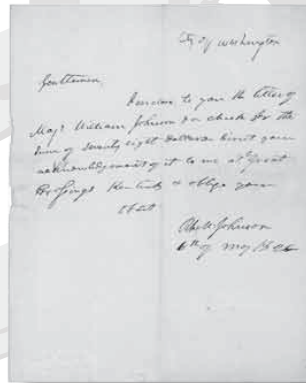 City of Washington
Gentlemen,
I enclose to you the letter of
Majr William Johnson & a check for the
sum of seventy eight dollars direct your
acknowledgment of it to me at Great
Kentucky & oblige your
Obt
Johnson
6th of May